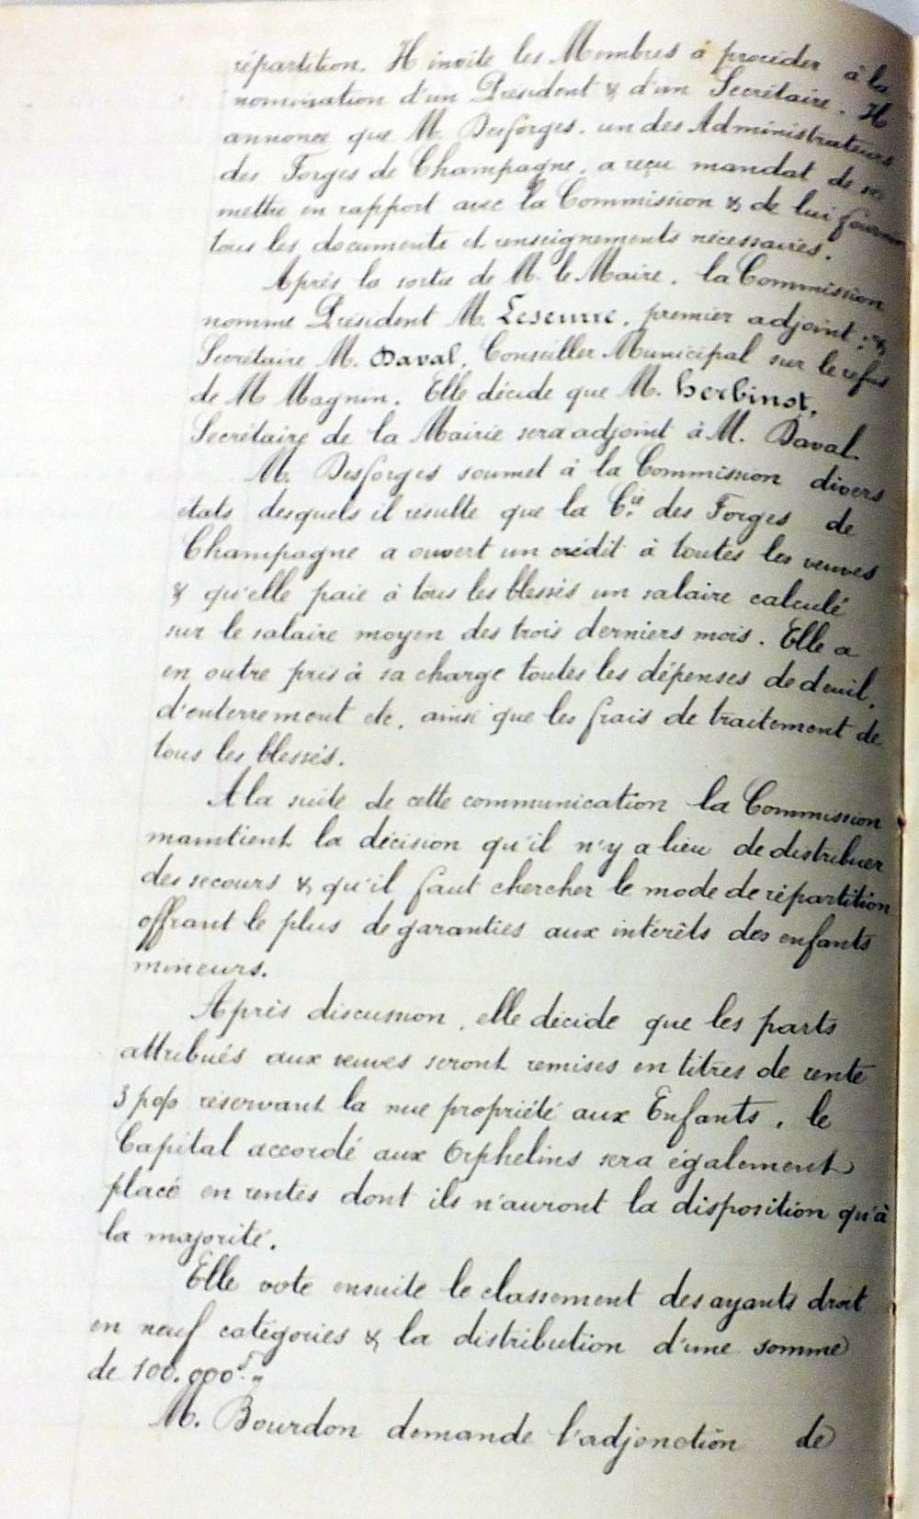 répartition. Il invite les Membres à procéder à la
nomination d'un Président & d'un Secrétaire. Il
annonce que M. Desforges, un des Administrateurs
des Forges de Champagne, a reçu mandat de se
mettre en rapport avec la Commission & de lui fournir
tous les documents et renseignements nécessaires.
Après la sortie de M. le Maire, la Commission
nomme Président M. Leseurre, premier adjoint; &
Secrétaire M. Daval, Conseiller Municipal sur le refus
de M Magnin. Elle décide que M. Herbinot,
Secrétaire de la Mairie sera adjoint à M. Daval
M. Desforges soumet à la Commission divers
états desquels il résulte que la Cie des Forges de
Champagne a ouvert un crédit à toutes les veuves
& qu'elle paie à tous les blessés un salaire calculé
sur le salaire moyen des trois derniers mois. Elle a
en outre pris à sa charge toutes les dépenses de deuil,
d'enterrement etc, ainsi que les frais de traitement de
tous les blessés.
A la suite de cette communication la Commission
maintient la décision qu'il n'y a lieu de distribuer
des secours & qu'il faut chercher le mode de répartition
offrant le plus de garanties aux intérêts des enfants
mineurs.
Après discussion, elle décide que les parts
attribués aux veuves seront remises en titres de rente
3 p% réservant la nue propriété aux Enfants, le
Capital accordé aux Orphelins sera également
placé en rentes dont ils n'auront la disposition qu'à
la majorité.
Elle vote ensuite le classement des ayants droit
en neuf catégories & la distribution d'une somme
de 100.000f.,,
M. Bourdon demande l'adjonction de